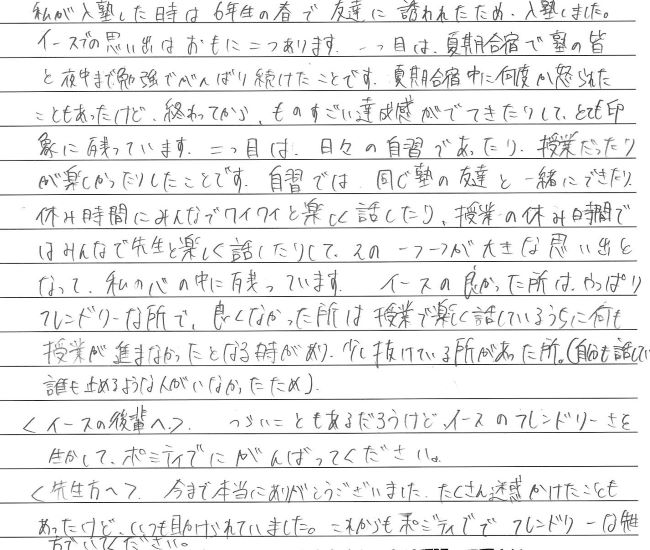 私が入塾した時は6年生の春で友達に誘われたため、入塾しました。
イースでの思い出はおもに二つあります。一つ目は、夏期合宿で塾の皆
と夜中まで勉強でがんばり続けたことです。夏期合宿中に何度か怒られた
こともあったけど、終わってから、ものすごい達成感がでてきたりして、とても印
象に残っています。二つ目は、日々の自習であったり、授業だったり
が楽しかったりしたことです。自習では、同じ塾の友達と一緒にできたり
休み時間にみんなでワイワイと楽しく話したり、授業の休み時間で
はみんなで先生と楽しく話したりして、その一つ一つが大きな思い出と
なって、私の心の中に残っています。 イースの良かった所は、やっぱり
フレンドリーな所で、良くなかった所は授業で楽しく話しているうちに何も
授業が進まなかったとなる時があり、少し抜けている所があった所。(自分も話してい
誰も止めるような人がいなかったため)
<イースの後輩へ> つらいこともあるだろうけど、イースのフレンドリーさを
生かして、ポジティブにがんばってください。
<先生方へ> 今まで本当にありがとうございました。たくさん迷惑かけたことも
あったけど、いつも助けられていました。これからもポジティブでフレンドリーな
方でいてください。